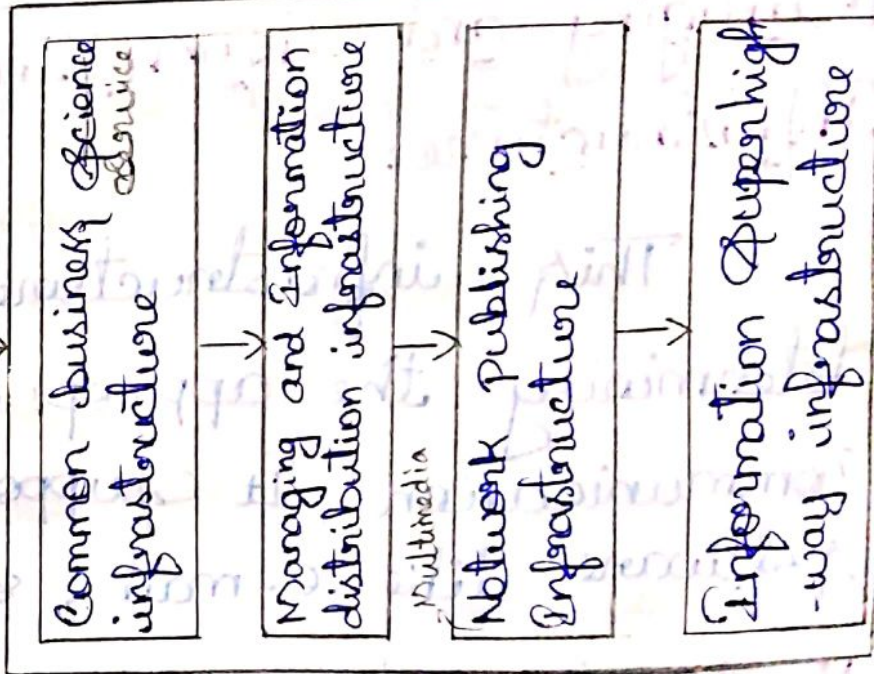 Common business Science
service
infrastructure
Managing and Information
distribution infrastructure
Multimedia
Network Publishing
Infrastructure
Information Superhigh
-way infrastructure
This infrastructure